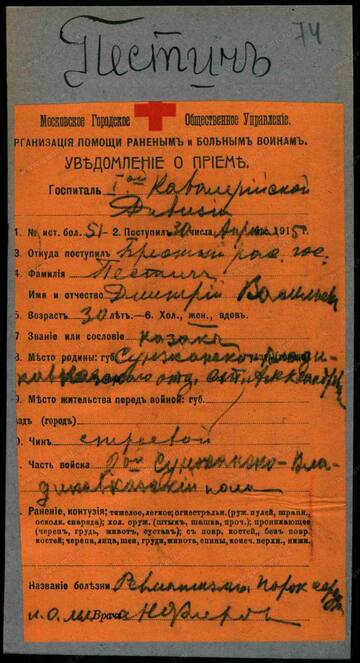 74
Пестичъ
Московское Городское Общественное Управленіе.
РГАНИЗАЦІЯ ПОМОЩИ РАНЕНЫМЪ и БОЛЬНЫМЪ ВОИНАМЪ.
УВѢДОМЛЕНІЕ О ПРІЕМѢ.
Госпиталь 1ой Кавалерійской
Дивизіи
1. № ист. бол. 51 - 2. Поступилъ 30 числа Апрѣля 1915 г.
3. Откуда поступилъ гос.
4. Фамилія Пестичъ
Имя и отчество Дмитрій Василье
5. Возрастъ 30 лѣтъ.—6. Хол., жен., вдовъ.
7. Званіе или сословіе казакъ
8. Мѣсто родины: губ. Сунженской Влади-
кавказскаго отд. ст.
9. Мѣсто жительства передъ войной: губ.
здъ (городъ)
0. Чинъ строевой
. Часть войска 2ой Сунженско-Вла-
дикавказскій полкъ
. Раненіе, контузія: тяжелое, легкое; огнестрѣльн. (руж. пулей, шрапн.,
осколк. снаряда); хол. оруж. (штыкъ, шашка, проч.); проникающее
(черепъ, грудь, животъ, суставъ); съ повр. костей., безъ повр.
костей; черепа, лица, шеи, груди, живота, спины, конеч. верхн., нижн.
Названіе болѣзни Ревматизмъ, порокъ серд
Врача